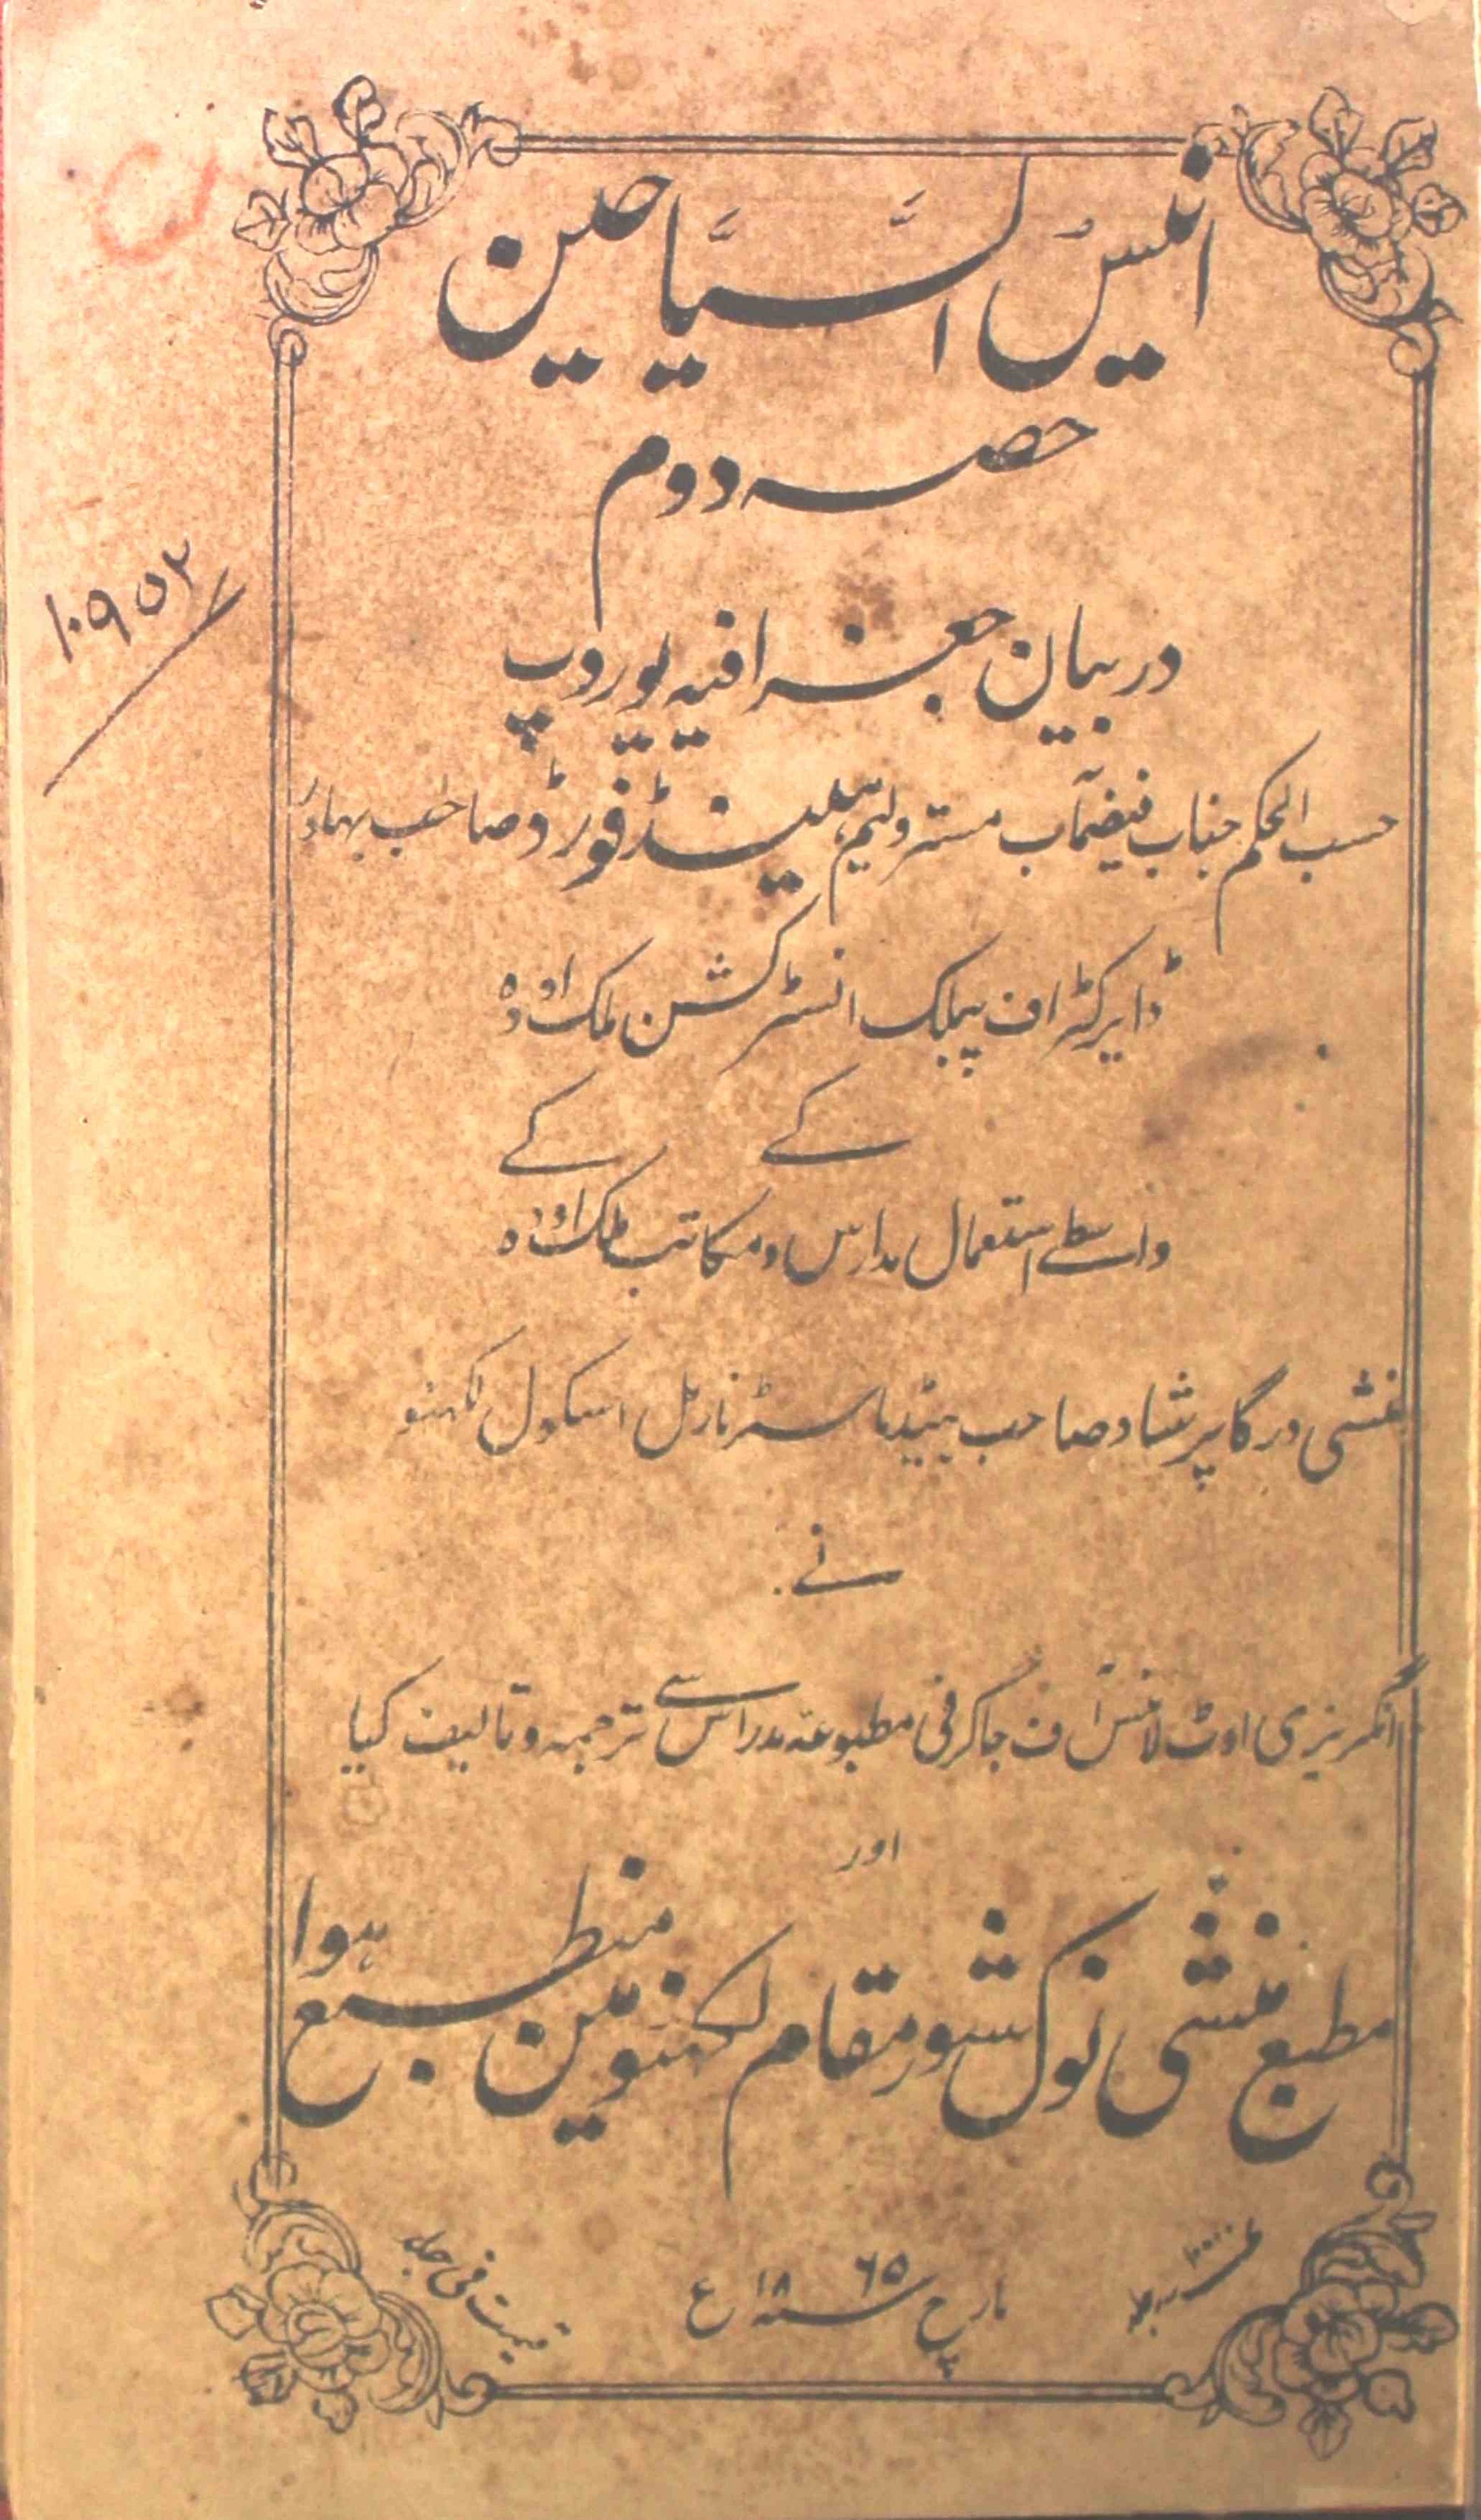 انیس السَّیَّاحین
حصہ دوم
در بیان جغرافیہ یوروپ
حسب الحکم جناب فیضمآب مستر ولیم ہینڈفورڈ صاحب بہادر
ڈایرکٹر اف پبلک انسٹرکشن ملک اودہ
کے کے
واسطے استعمال مدارس و مکاتب ملک اودہ
منشی درگا پرشاد صاحب ہیڈماسٹر نارمل اسکول لکہنؤ
نے
انگریزی اوٹ لائنس آف جاگرفی مطبوعہ مدراس سے ترجمہ و تالیف کیا
اور
مطبع منشی نولکشور مقام لکہنؤ مین منطبع ہوا
مارچ سنہ ۱۸۶۵ ع
قیمت فی جلد
۱۰۹۵۲